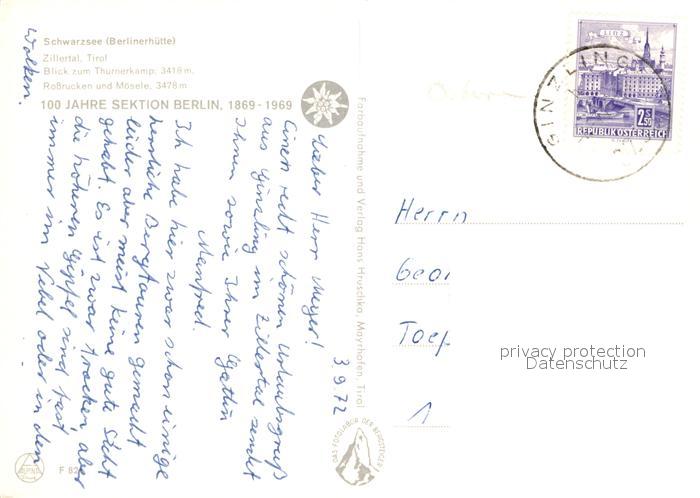 Schwarzsee (Berlinerhütte)
Zillertal, Tirol
Blick zum Thurnerkamp, 3418 m.
Roßrucken und Mösele, 3478 m
100 JAHRE SEKTION BERLIN, 1869-1969
3.9.72
Lieber Herr Meyer!
Einen recht schönen Urlaubsgruß
aus Ginzling im Zillertal sendet
Ihnen sowie Ihrer Gattin
Manfred.
Ich habe hier zwar schon einige
herrliche Bergtouren gemacht
leider aber meist keine gute Sicht
gehabt. Es ist zwar trocken, aber
die höheren Gipfel sind fast
immer im Nebel oder in den
Wolken.
F 82
ALPINE
Farbaufnahme und Verlag Hans Hruschka, Mayrhofen, Tirol
DAS FOTOLABOR DER BERGSTEIGER
LINZ
2.50
REPUBLIK ÖSTERREICH
GINZLING
Ostern
Herrn
Geor
Toep
1
privacy protection
Datenschutz